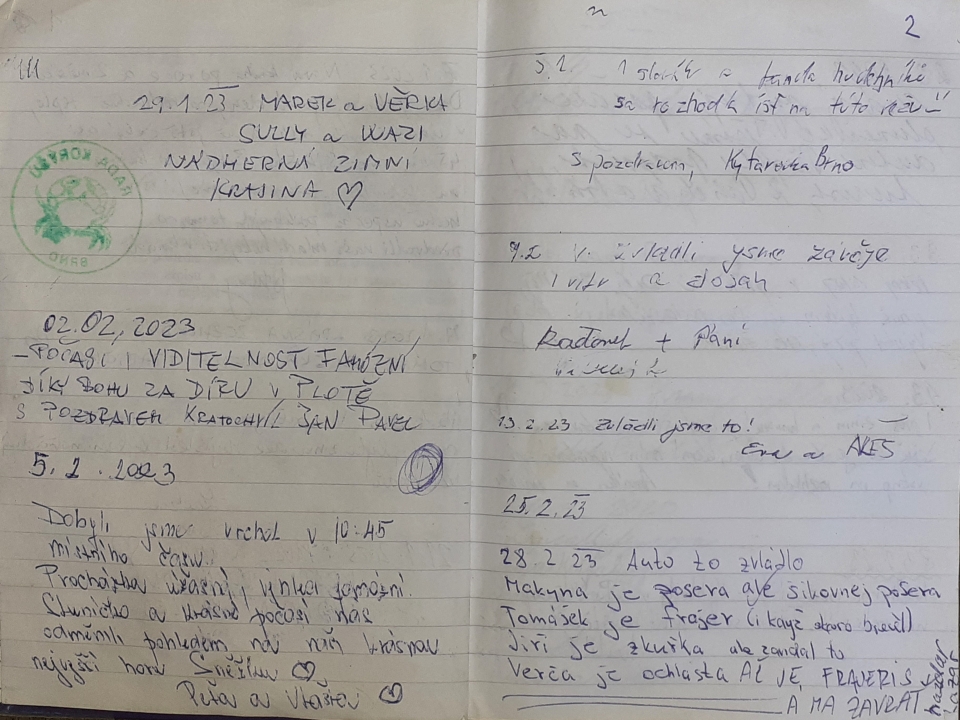 29.1.23 MAREK a VĚRKA
SULLY a WAZI
NÁDHERNÁ ZIMNÍ
KRAJINA ♡
BRNO
02.02.2023
- POČASÍ I VIDITELNOST FAMÓZNÍ
DÍKY BOHU ZA DÍRU V PLOTĚ
S POZDRAVEM KRATOCHVÍL JAN PAVEL
5.2.2023
Dobyli jsme vrchol v 10:45
místního času.
Procházka úžasná, famózní.
Sluníčko a krásné počasí nás
odměnili pohledem na naši krásnou
nejvyšší horu Sněžku ♡
Péťa a Vlaďta ♡
2
5.2. 1 slovák a banda hudebníků
sa rozhodla ísť na túto
S pozdravem, Kytarovka Brno
7.2 zvládli jsme závěje
i vítr a
Radonek + Paní
13.2.23 Zvládli jsme to!
Eva a ALEŠ
25.2.23
28.2 23 Auto to zvládlo
Makyna je posera ale šikovnej posera
Tomášek je frajer (i když skoro
Jiří je zkuřka ale zandal to
Verča je ochlasta AČ JE FRAJERIS
A MA ZAVRAT